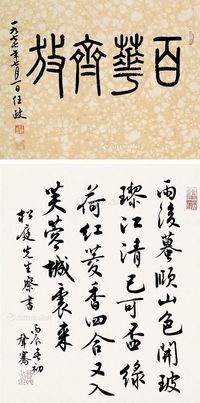 百華齊放
一九七七年七月一日任政
雨後蟇頤山色開玻
瓈江清已可盃綠
荷紅菱香四合又入
芙蓉城裏來
松庭先生察書
丙辰春初